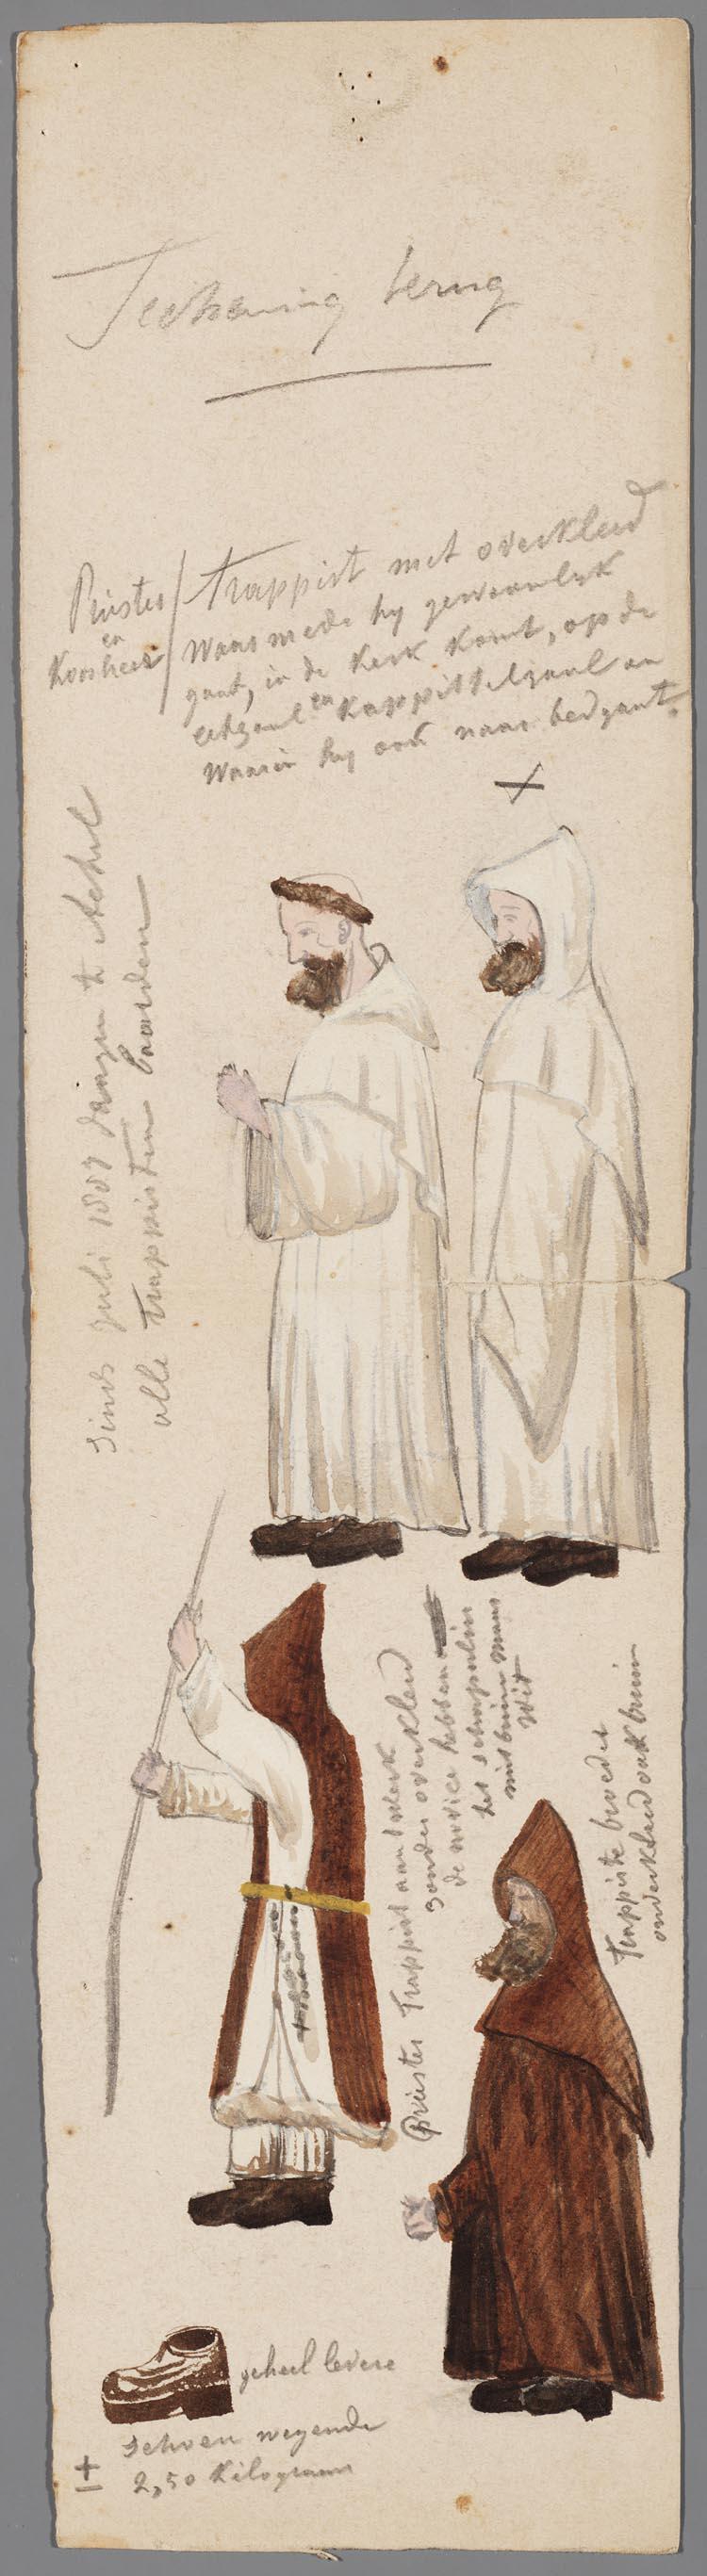 Teekening terug
Priester
en
Koorheer
trappist met overkleed
Waarmede hy gewoonlyk
gaat, in de Kerk komt, op de
eetzaal en Kappittelzaal en
Waarin hy ook naar bed gaat.
Sinds juli 1887 dragen te Achel
alle trappisten baarden
Priester Trappist aan 't werk
zonder overkleed
de novice hebben
het schapulier
niet bruin maar
Wit
Trappiste broeder
onderkleed ook bruin
geheel ledere
Schoen wegende
± 2,50 Kilogram